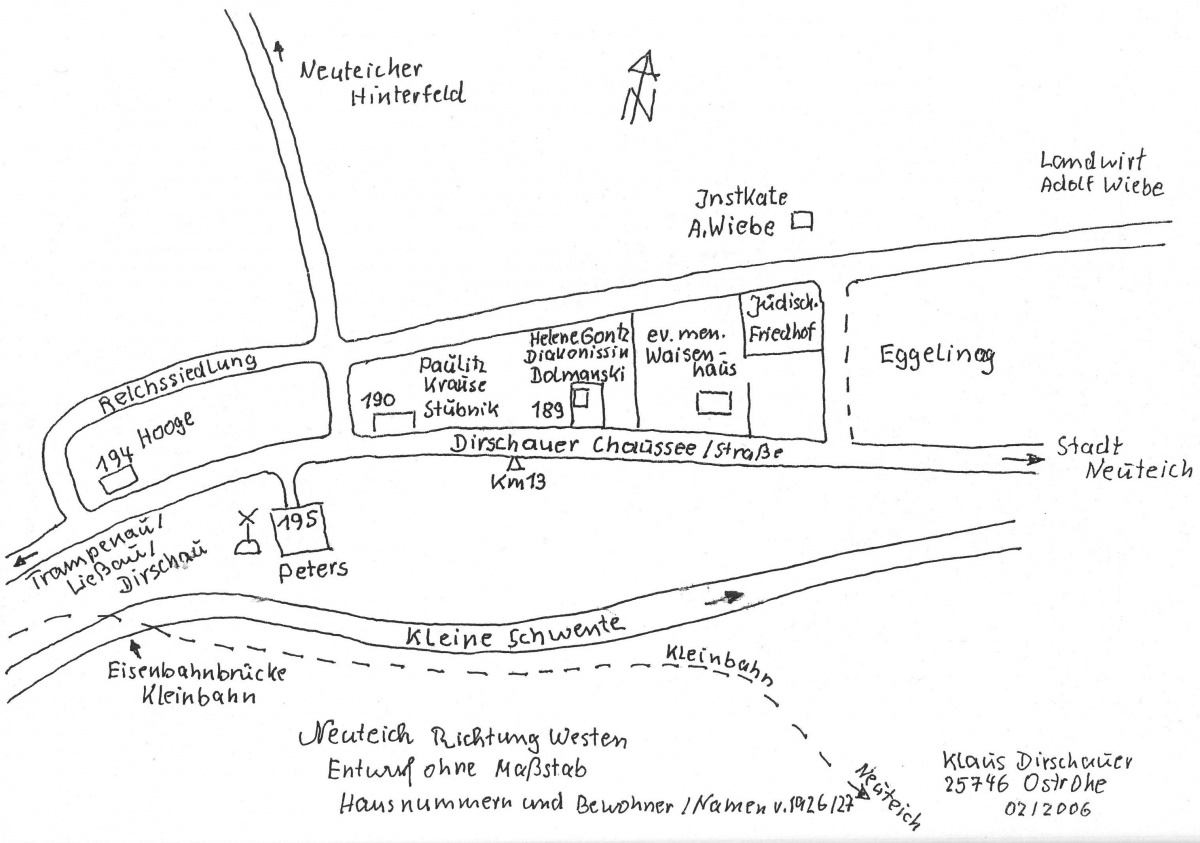 Neuteicher
Hinterfeld
N
Landwirt
Adolf Wiebe
Instkate
A. Wiebe
Jüdisch.
Friedhof
Helene Gontz
Diakonissin
Dolmanski
189
ev. men.
Waisen-
haus
Eggelinag
Paulitz
Krause
Stübnik
190
Reichssiedlung
Hooge
194
Dirschauer Chaussee/Straße
Km13
Stadt
Neuteich
195
Peters
Trampenau/
Ließau/
Dirschau
Kleine Schwente
Kleinbahn
Eisenbahnbrücke
Kleinbahn
Neuteich Richtung Westen
Entwurf ohne Maßstab
Hausnummern und Bewohner/Namen v. 1926/27
Neuteich
Klaus Dirschauer
25746 Ostrohe
02/2006